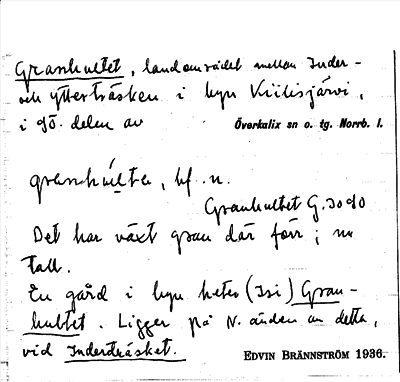 Granhultet, landområdet mellan Inder-
och ytterträsken i byn Kiilisjärvi,
i sö. delen av Överkalix sn o. tg. Norrb. l.
granhúlte, bf. n.
Granhultet G. 3090
Det har växt gran där förr; nu
tall.
En gård i byn heter (Isi) Gran-
hultet. Ligger på N. änden av detta,
vid Inderträsket.
EDVIN BRÄNNSTRÖM 1936.